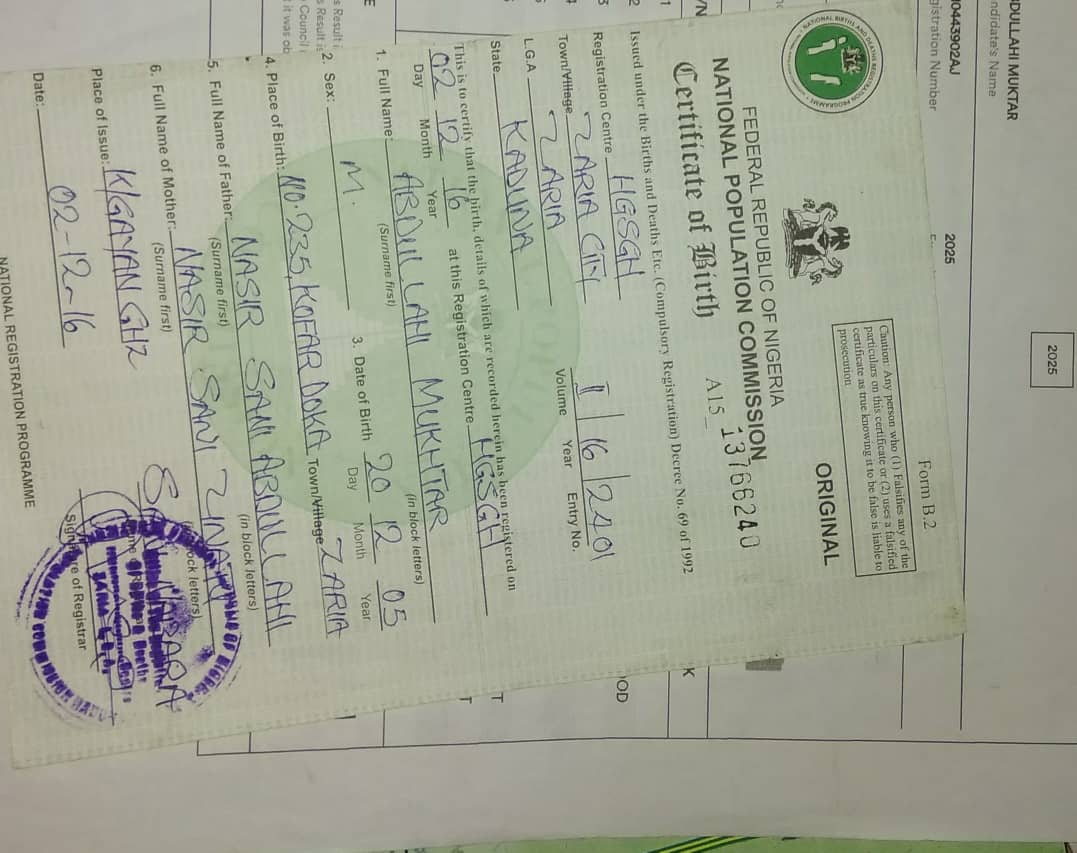 NDULLAHI MUKTAR
ndidate's Name
2025
2025
10443902AJ
gistration Number
Form B.2
Caution: Any person who (1) Falsifies any of the
particulars on this certificate or (2) uses a falsified
certificate as true knowing it to be false is liable to
prosecution
ORIGINAL
NATIONAL BIRTHS AND DEATHS REGISTRATION PROGRAMME
FEDERAL REPUBLIC OF NIGERIA
NATIONAL POPULATION COMMISSION
Certificate of Birth A15 13766240
Issued under the Births and Deaths Etc. (Compulsory Registration) Decree No. 69 of 1992
Registration Centre HGSGH
Town/Village ZARIA CITY I 16 2401
Volume Year Entry No.
L.G.A ZARIA
State KADUNA
This is to certify that the birth, details of which are recorded herein has been registered on
02 12 16 at this Registration Centre HGSGH
Day Month Year
1. Full Name: ABDULLAHI MUKHTAR
(Surname first) (in block letters)
2. Sex: M. 3. Date of Birth 20 12 05
Day Month Year
4. Place of Birth: NO. 235, KOFAR DOKA Town/Village ZARIA
5. Full Name of Father: NASIR SANI ABDULLAHI
(Surname first) (in block letters)
6. Full Name of Mother: NASIR SANI ZINATU
(Surname first) (in block letters)
Place of Issue: K/GAYAN GHZ
Signature of Registrar
Date: 02-12-16
NATIONAL REGISTRATION PROGRAMME